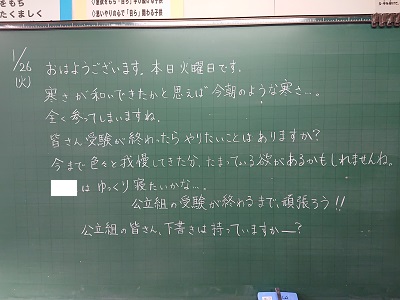 をもち
たくましく
◇意欲をもち「自ら」学び続ける子供
◇思いやりの心で「自ら」関わる子供
1/26
(火)
おはようございます。本日火曜日です。
寒さが和いできたかと思えば今朝のような寒さ…。
全く参ってしまいますね。
皆さん受験が終わったらやりたいことはありますか?
今まで色々と我慢してきた分、たまっている欲があるかもしれませんね。
はゆっくり寝たいかな…。
公立組の受験が終わるまで、頑張ろう!!
公立組の皆さん、下書きは持っていますかー?